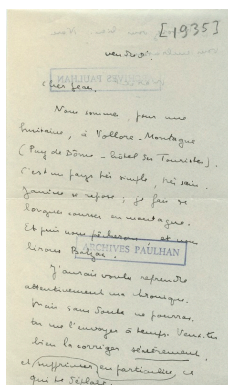 [1935]
vendredi.
ARCHIVES PAULHAN
Cher Jean,
Nous sommes, pour une
huitaine, à Vollore-Montagne
(Puy de Dôme - hôtel des Touristes).
C'est un pays très simple, très sain.
Janine se repose ; je fais de
longues courses en montagne.
Et puis nous pêcherons et nous
lirons Balzac.
ARCHIVES PAULHAN
J'aurais voulu reprendre
attentivement ma chronique.
Mais sans doute ne pourras-
tu me l'envoyer à temps. Veux-tu
bien la corriger sévèrement,
et supprimer, en particulier, ce
qui te déplaît